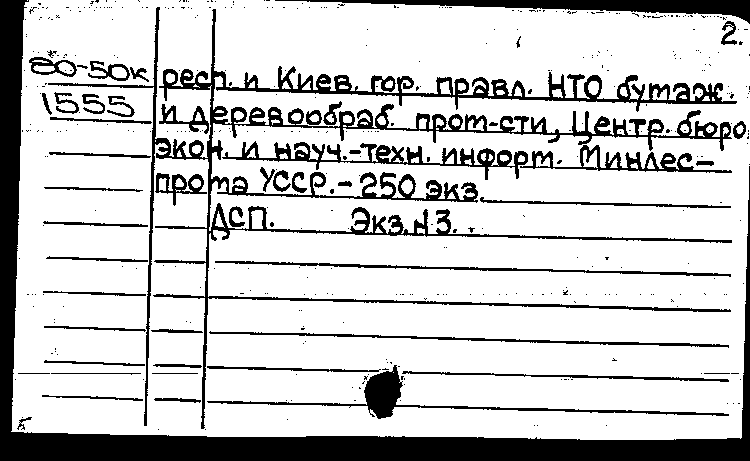 2.
80-50к респ. и Киев. гор. правл. НТО бумаж.
1555 и деревообраб. пром-сти, Центр. бюро
экон. и науч.-техн. информ. Минлес-
прома УССР.- 250 экз.
ДСП. Экз. N3.